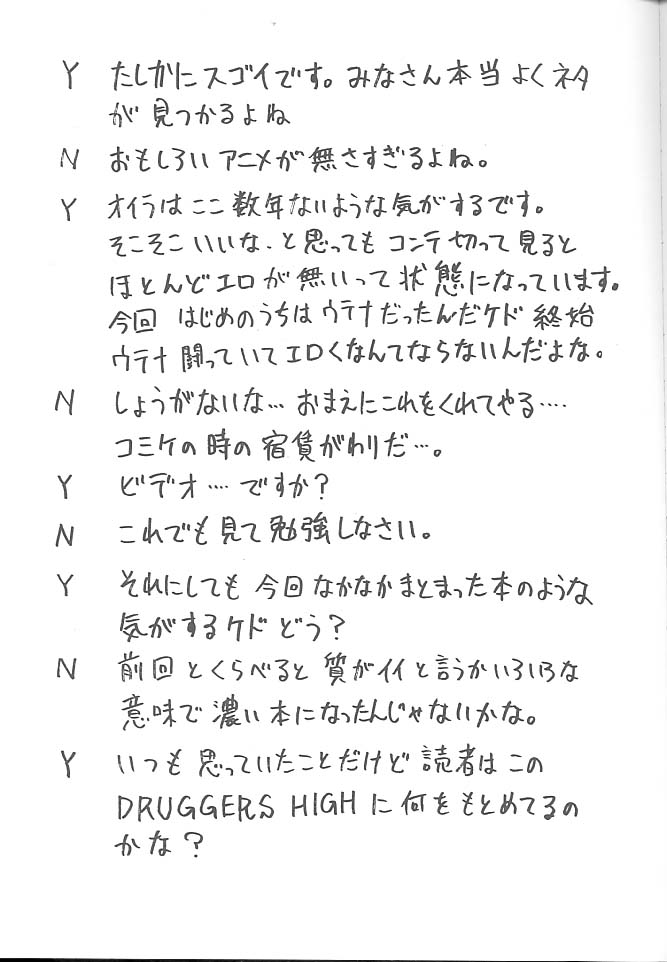 Y たしかにスゴイです。みなさん本当よくネタ
が見つかるよね
N おもしろいアニメが無さすぎるよね。
Y オイラはここ数年ないような気がするです。
そこそこいいな、と思ってもコンテ切って見ると
ほとんどエロが無いって状態になっています。
今回 はじめのうちはウテナだったんだケド 終始
ウテナ 闘っていてエロくなんてならないんだよな。
N しょうがないな… おまえにこれをくれてやる….
コミケの時の宿賃がわりだ…。
Y ビデオ…ですか?
N これでも見て勉強しなさい。
Y それにしても 今回なかなかまとまった本のような
気がするケド どう?
N 前回とくらべると 質がイイと言うかいろいろな
意味で濃い本になったんじゃないかな。
Y いつも思っていたことだけど読者はこの
DRUGGERS HIGHに何をもとめてるの
かな?